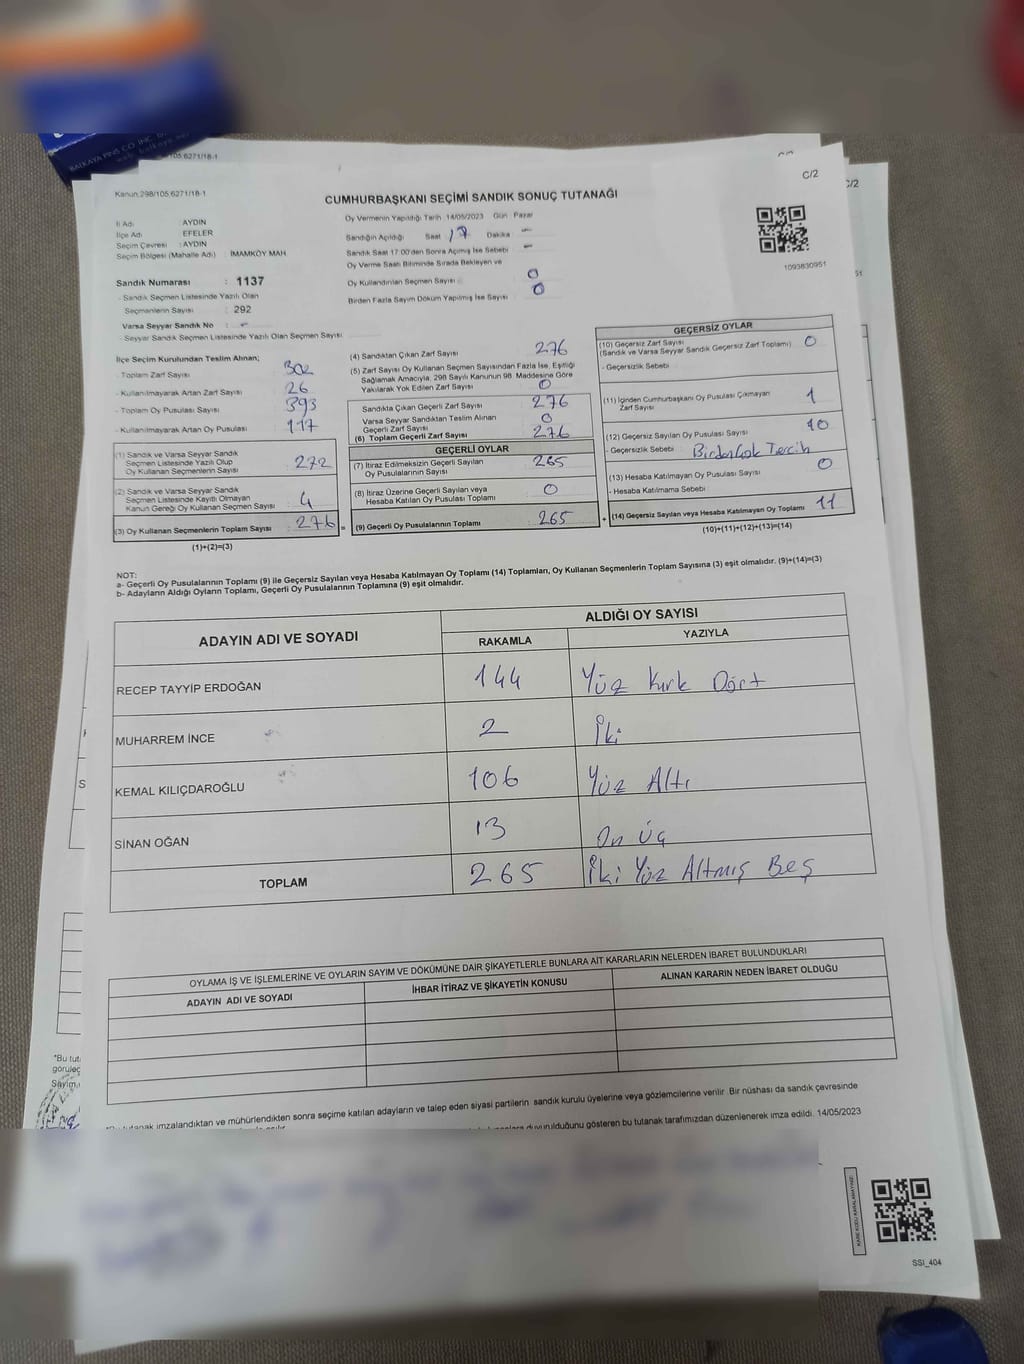 BALKAYA PINS CO INC.
105.6271/18-1
C/2
C/2
Kanun:298/105,6271/18-1
CUMHURBAŞKANI SEÇİMİ SANDIK SONUÇ TUTANAĞI
İl Adı AYDIN
İlçe Adı EFELER
Seçim Çevresi : AYDIN
Seçim Bölgesi (Mahalle Adı) : İMAMKÖY MAH
Oy Vermenin Yapıldığı Tarih 14/05/2023 Gün Pazar
Sandığın Açıldığı Saat 17 Dakika -
Sandık Saat 17:00'den Sonra Açımış İse Sebebi -
Oy Verme Saati Bitiminde Sırada Bekleyen ve
Oy Kullandırılan Seçmen Sayısı : 0
Birden Fazla Sayım Döküm Yapılmış İse Sayısı 0
1093830951
Sandık Numarası : 1137
- Sandık Seçmen Listesinde Yazılı Olan
Seçmenlerin Sayısı : 292
Varsa Seyyar Sandık No : -
- Seyyar Sandık Seçmen Listesinde Yazılı Olan Seçmen Sayısı:
İlçe Seçim Kurulundan Teslim Alınan;
- Toplam Zarf Sayısı : 302
- Kullanılmayarak Artan Zarf Sayısı : 26
- Toplam Oy Pusulası Sayısı : 393
- Kullanılmayarak Artan Oy Pusulası : 117
(1) Sandık ve Varsa Seyyar Sandık
Seçmen Listesinde Yazılı Olup
Oy Kullanan Seçmenlerin Sayısı : 272
(2) Sandık ve Varsa Seyyar Sandık
Seçmen Listesinde Kayıtlı Olmayan
Kanun Gereği Oy Kullanan Seçmen Sayısı : 4
(3) Oy Kullanan Seçmenlerin Toplam Sayısı : 276 =
(1)+(2)=(3)
(4) Sandıktan Çıkan Zarf Sayısı 276
(5) Zarf Sayısı Oy Kullanan Seçmen Sayısından Fazla İse, Eşitliği
Sağlamak Amacıyla, 298 Sayılı Kanunun 98. Maddesine Göre
Yakılarak Yok Edilen Zarf Sayısı : 0
Sandıkta Çıkan Geçerli Zarf Sayısı : 276
Varsa Seyyar Sandıktan Teslim Alınan
Geçerli Zarf Sayısı : 0
(6) Toplam Geçerli Zarf Sayısı : 276
GEÇERLİ OYLAR
(7) İtiraz Edilmeksizin Geçerli Sayılan
Oy Pusulalarının Sayısı : 265
(8) İtiraz Üzerine Geçerli Sayılan veya
Hesaba Katılan Oy Pusulası Toplamı : 0
(9) Geçerli Oy Pusulalarının Toplamı : 265 +
GEÇERSİZ OYLAR
(10) Geçersiz Zarf Sayısı
(Sandık ve Varsa Seyyar Sandık Geçersiz Zarf Toplamı) : 0
- Geçersizlik Sebebi :
(11) İçinden Cumhurbaşkanı Oy Pusulası Çıkmayan
Zarf Sayısı : 1
(12) Geçersiz Sayılan Oy Pusulası Sayısı : 10
- Geçersizlik Sebebi : Birden Çok Tercih
(13) Hesaba Katılmayan Oy Pusulası Sayısı : 0
- Hesaba Katılmama Sebebi :
(14) Geçersiz Sayılan veya Hesaba Katılmayan Oy Toplamı : 11
(10)+(11)+(12)+(13)=(14)
NOT:
a- Geçerli Oy Pusulalarının Toplamı (9) ile Geçersiz Sayılan veya Hesaba Katılmayan Oy Toplamı (14) Toplamları, Oy Kullanan Seçmenlerin Toplam Sayısına (3) eşit olmalıdır. (9)+(14)=(3)
b- Adayların Aldığı Oyların Toplamı, Geçerli Oy Pusulalarının Toplamına (9) eşit olmalıdır.
ADAYIN ADI VE SOYADI ALDIĞI OY SAYISI
RAKAMLA YAZIYLA
RECEP TAYYİP ERDOĞAN 144 Yüz Kırk Dört
MUHARREM İNCE 2 İki
KEMAL KILIÇDAROĞLU 106 Yüz Altı
SİNAN OĞAN 13 On Üç
TOPLAM 265 İki Yüz Altmış Beş
OYLAMA İŞ VE İŞLEMLERİNE VE OYLARIN SAYIM VE DÖKÜMÜNE DAİR ŞİKAYETLERLE BUNLARA AİT KARARLARIN NELERDEN İBARET BULUNDUKLARI
ADAYIN ADI VE SOYADI İHBAR İTİRAZ VE ŞİKAYETİN KONUSU ALINAN KARARIN NEDEN İBARET OLDUĞU
tutanak imzalandıktan ve mühürlendikten sonra seçime katılan adayların ve talep eden siyasi partilerin sandık kurulu üyelerine veya gözlemcilerine verilir. Bir nüshası da sandık çevresinde
duyurulduğunu gösteren bu tutanak tarafımızdan düzenlenerek imza edildi. 14/05/2023
*Bu tut
görüleç
Sayım
SSİ_404